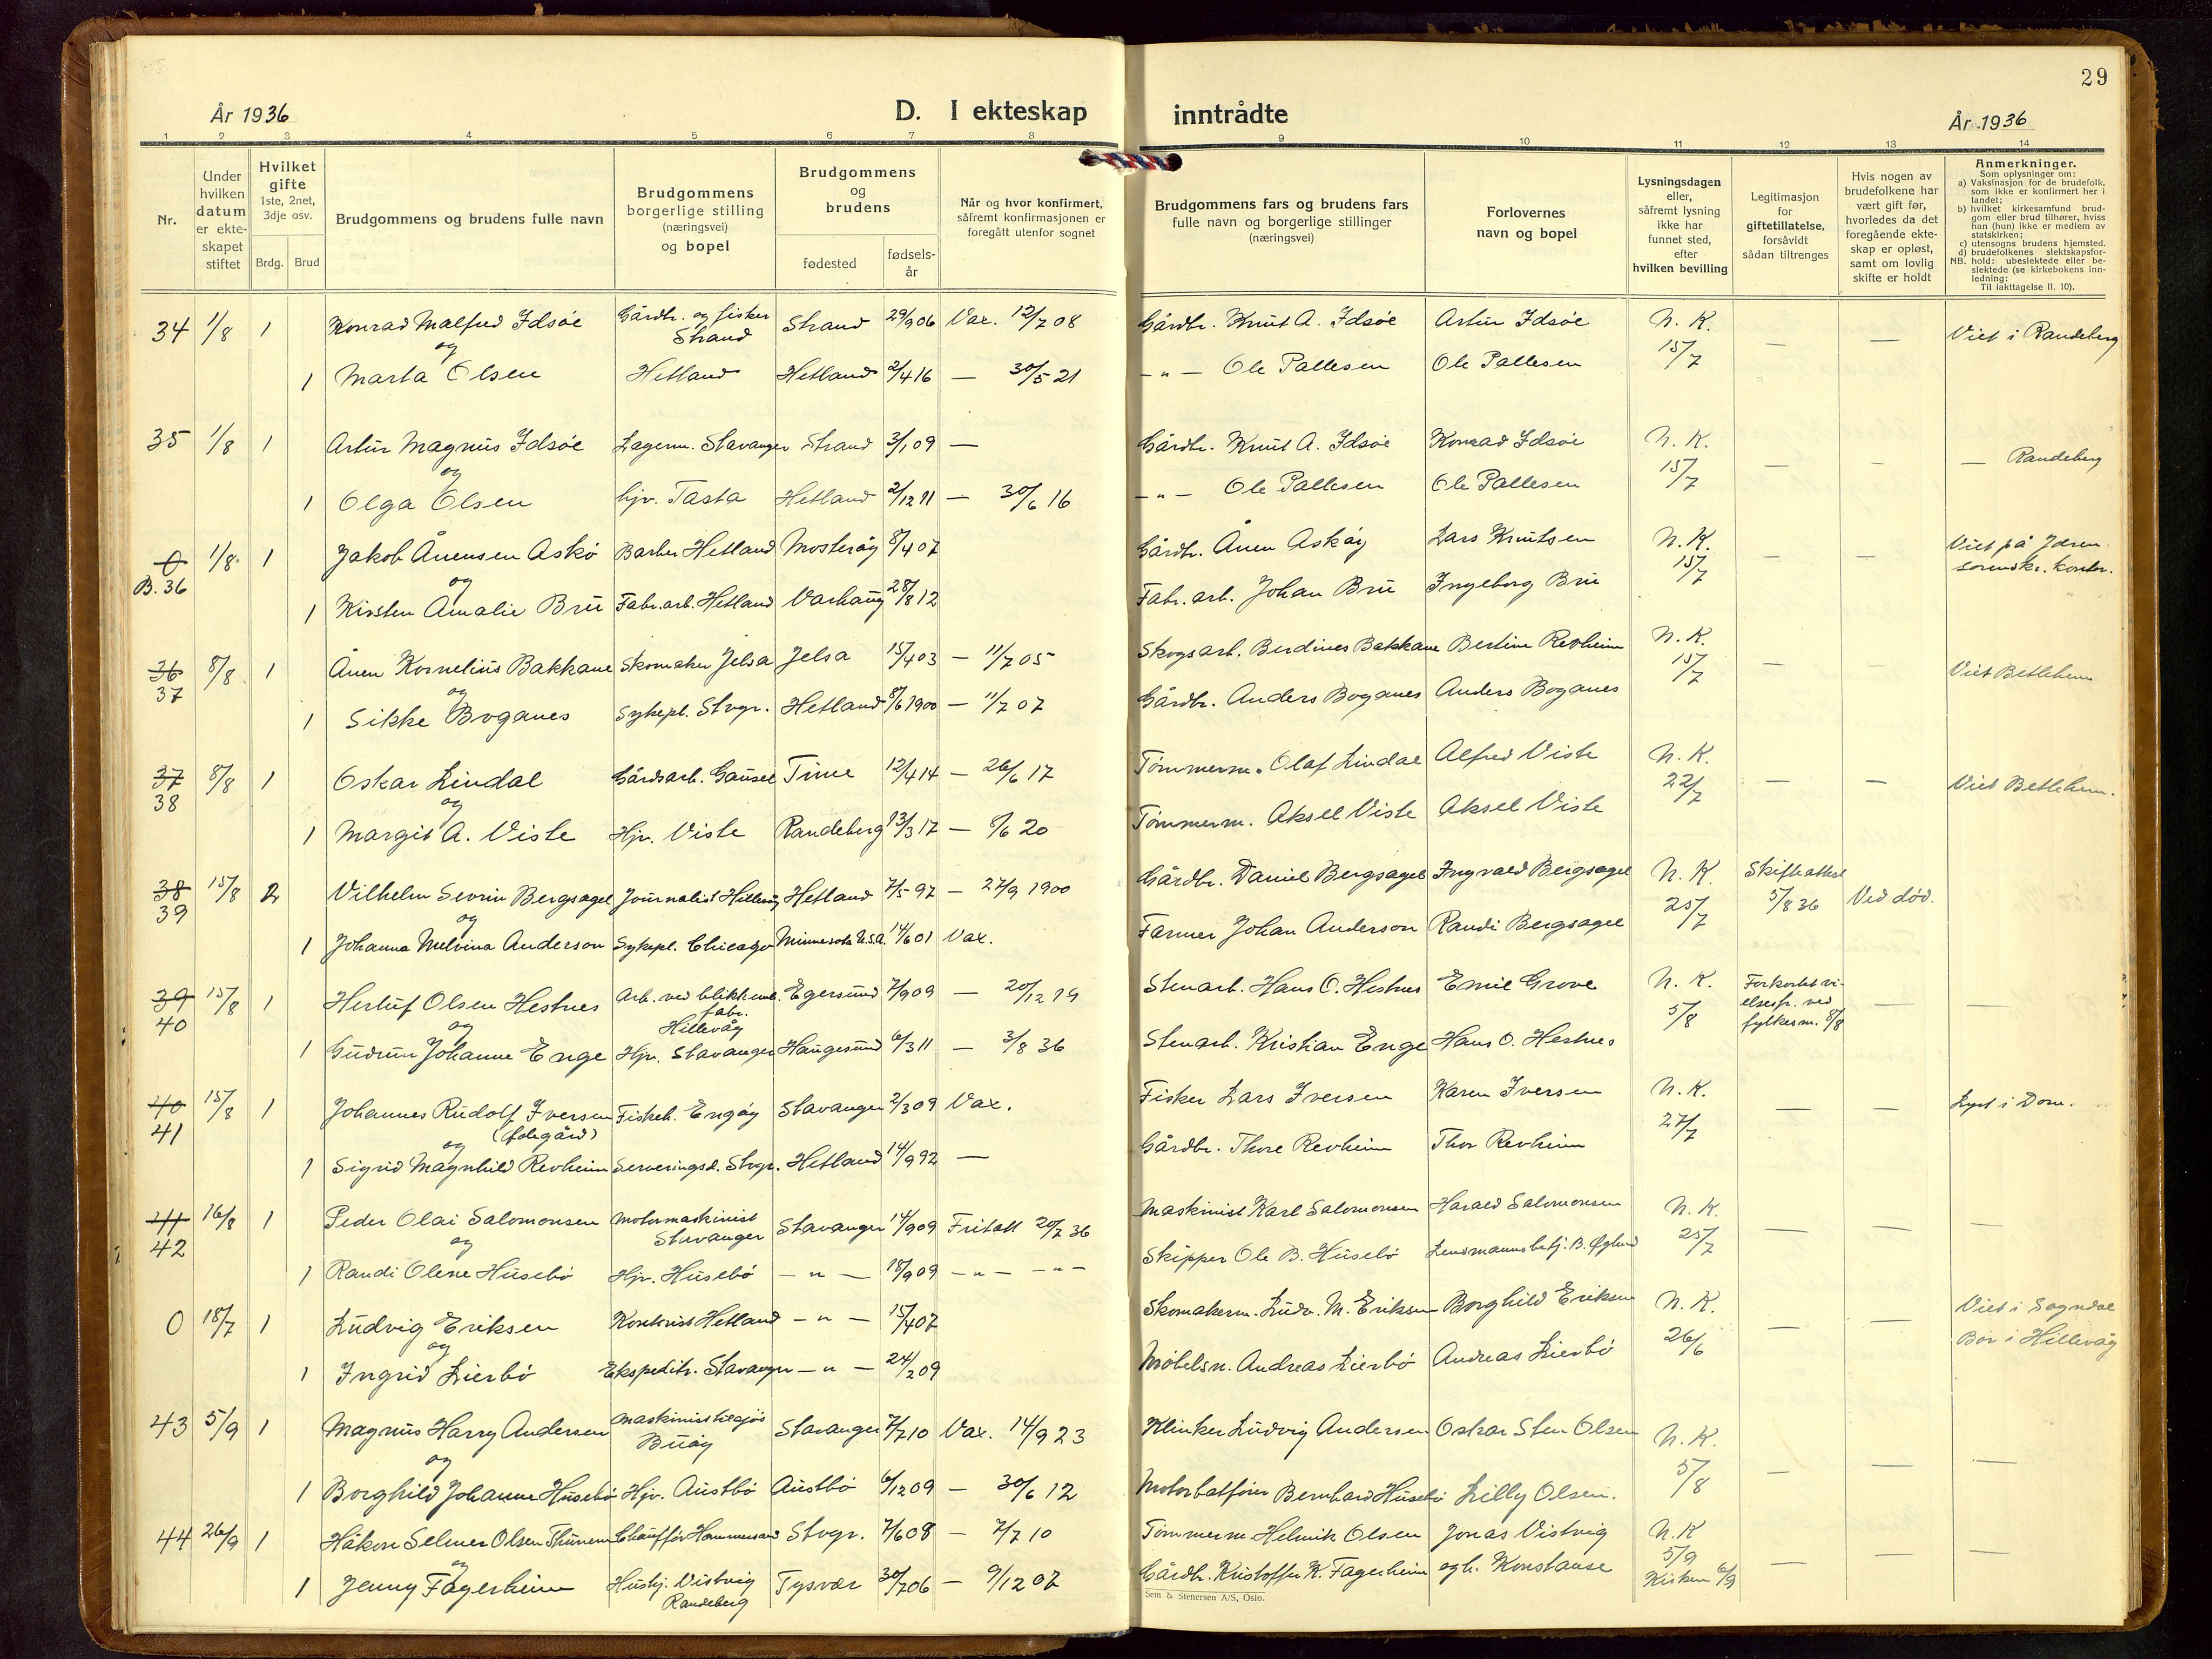 29
År 1936
D. I ekteskap inntrådte
År 1936
1 2 3 4 5 6 7 8 9 10 11 12 13 14
Nr.
Under hvilken datum er ekteskapet stiftet
Hvilket gifte 1ste, 2net, 3dje osv.
Brdg. Brud
Brudgommens og brudens fulle navn
Brudgommens borgerlige stilling (næringsvei) og bopel
Brudgommens og brudens
fødested
fødselsår
Når og hvor konfirmert, såfremt konfirmasjonen er foregått utenfor sognet
Brudgommens fars og brudens fars fulle navn og borgerlige stillinger (næringsvei)
Forlovernes navn og bopel
Lysningsdagen eller, såfremt lysning ikke har funnet sted, efter hvilken bevilling
Legitimasjon for giftetillatelse, forsåvidt sådan tiltrenges
Hvis nogen av brudefolkene har vært gift før, hvorledes da det foregående ekteskap er opløst, samt om lovlig skifte er holdt
Anmerkninger.
Som oplysninger om:
a) Vaksinasjon for de brudefolk, som ikke er konfirmert her i landet;
b) hvilket kirkesamfund brudgom eller brud tilhører, hviss han (hun) ikke er medlem av statskirken;
c) utensogns brudens hjemsted.
d) brudefolkenes slektskapsforhold: ubeslektede eller beslektede (se kirkebokens innledning:
NB.
Til iakttagelse II. 10).
34 1/8 1 Konrad Malfred Idsøe Gårdbr. og fisker Strand Strand 29/9 06 Vax. 12/7 08 Gårdbr. Knut A. Idsøe Artur Idsøe N. K. 15/7 — — Viet i Randeberg
og
1 Marta Olsen Hetland Hetland 2/4 16 — 30/5 21 — " — Ole Pallesen Ole Pallesen
35 1/8 1 Artur Magnus Idsøe Lagerm. Stavanger Strand 3/1 09 — Gårdbr. Knut A. Idsøe Konrad Idsøe N. K. 15/7 — — — Randeberg
og
1 Olga Olsen hjv. Tasta Hetland 2/12 11 — 30/6 16 — " — Ole Pallesen Ole Pallesen
0 B. 36 1/8 1 Jakob Ånensen Askø Barber Hetland Mosterøy 8/4 07 Gårdbr. Ånen Askøy Lars Knutsen N. K. 15/7 — — Viet på Jæren sorenskr. kontor.
og
1 Kirsten Amalie Bru Fabr.arb. Hetland Varhaug 28/8 12 Fabr. arb. Johan Bru Ingeborg Bru
36 37 8/8 1 Ånen Kornelius Bakkane Skomaker Jelsa Jelsa 15/4 03 — 11/7 05 Skogsarb. Berdines Bakkane Bertine Revheim N. K. 15/7 — — Viet Betlehem
og
1 Sikke Boganes Sykepl. Stvgr. Hetland 8/6 1900 — 11/7 07 Gårdbr. Anders Boganes Anders Boganes
37 38 8/8 1 Oskar Lindal Gårdsarb. Gausel Time 12/4 14 — 26/6 17 Tømmerm. Olaf Lindal Alfred Viste N. K. 22/7 — — Viet Betlehem.
og
1 Margit A. Viste Hjv. Viste Randeberg 13/3 17 — 8/6 20 Tømmerm. Aksel Viste Aksel Viste
38 39 15/8 2 Vilhelm Sevrin Bergsagel Journalist Hillevåg Hetland 7/5 97 — 27/9 1900 Gårdbr. Daniel Bergsagel Ingvald Bergsagel N. K. 25/7 Skifteattest 5/8 36 Ved død.
og
1 Johanna Melvina Anderson Sykepl. Chicago Minnesota U.S.A. 14/6 01 Vax. Farmer Johan Anderson Randi Bergsagel
39 40 15/8 1 Herluf Olsen Hestnes Arb. ved blikkemb. fabr. Hillevåg Egersund 7/9 09 — 20/12 19 Stenarb. Hans O. Hestnes Emil Grove N. K. 5/8 Forkortet vielsesfr. ved fylkesm. 8/8 — —
og
1 Gudrun Johanne Enge Hjv. Stavanger Haugesund 6/3 11 — 3/8 36 Stenarb. Kristian Enge Hans O. Hestnes
40 41 15/8 1 Johannes Rudolf Iversen (Ødegård) Fiskeh. Engøy Stavanger 2/3 09 Vax. Fisker Lars Iversen Karen Iversen N. K. 27/7 — — Lyst i Dom.
og
1 Sigrid Magnhild Revheim Serveringsd. Stvgr. Hetland 14/9 92 — Gårdbr. Thore Revheim Thor Revheim
41 42 16/8 1 Peder Olai Salomonsen Motormaskinist Stavanger Stavanger 14/9 09 Fritatt 20/7 36 Maskinist Karl Salomonsen Harald Salomonsen N. K. 25/7 — — —
og
1 Randi Olene Husebø Hjv. Husebø — " — 18/9 09 — " — — " — Skipper Ole B. Husebø Lensmannsbetj. B. Øglend
0 18/7 1 Ludvig Eriksen Kontorist Hetland — " — 15/4 07 Skomakerm. Ludv. M. Eriksen Borghild Eriksen N. K. 26/6 — — Viet i Sogndal Bor i Hillevåg
og
1 Ingrid Lierbø Ekspeditr. Stavanger — " — 24/2 09 Møbelsn. Andreas Lierbø Andreas Lierbø
43 5/9 1 Magnus Harry Andersen Maskinist tilsjøs Buøy Stavanger 7/7 10 Vax. 14/9 23 Klinker Ludvig Andersen Oskar Sten Olsen N. K. 5/8 — — —
og
1 Borghild Johanne Husebø Hjv. Austbø Austbø 6/12 09 — 30/6 12 Motorbåtfører Bernhard Husebø Lilly Olsen.
44 26/9 1 Håkon Selmer Olsen Thunem Chauffør Hammersand Stvgr. 7/6 08 — 7/7 10 Tømmerm. Helmik Olsen Jonas Vistvig N. K 5/9 Kirken 6/9 — — —
og
1 Jenny Fagerheim Hushj. Vistvig Randeberg Tysvær 30/7 06 — 9/12 07 Gårdbr. Kristoffer K. Fagerheim og h. Konstanse
Sem & Stenersen A/S, Oslo.